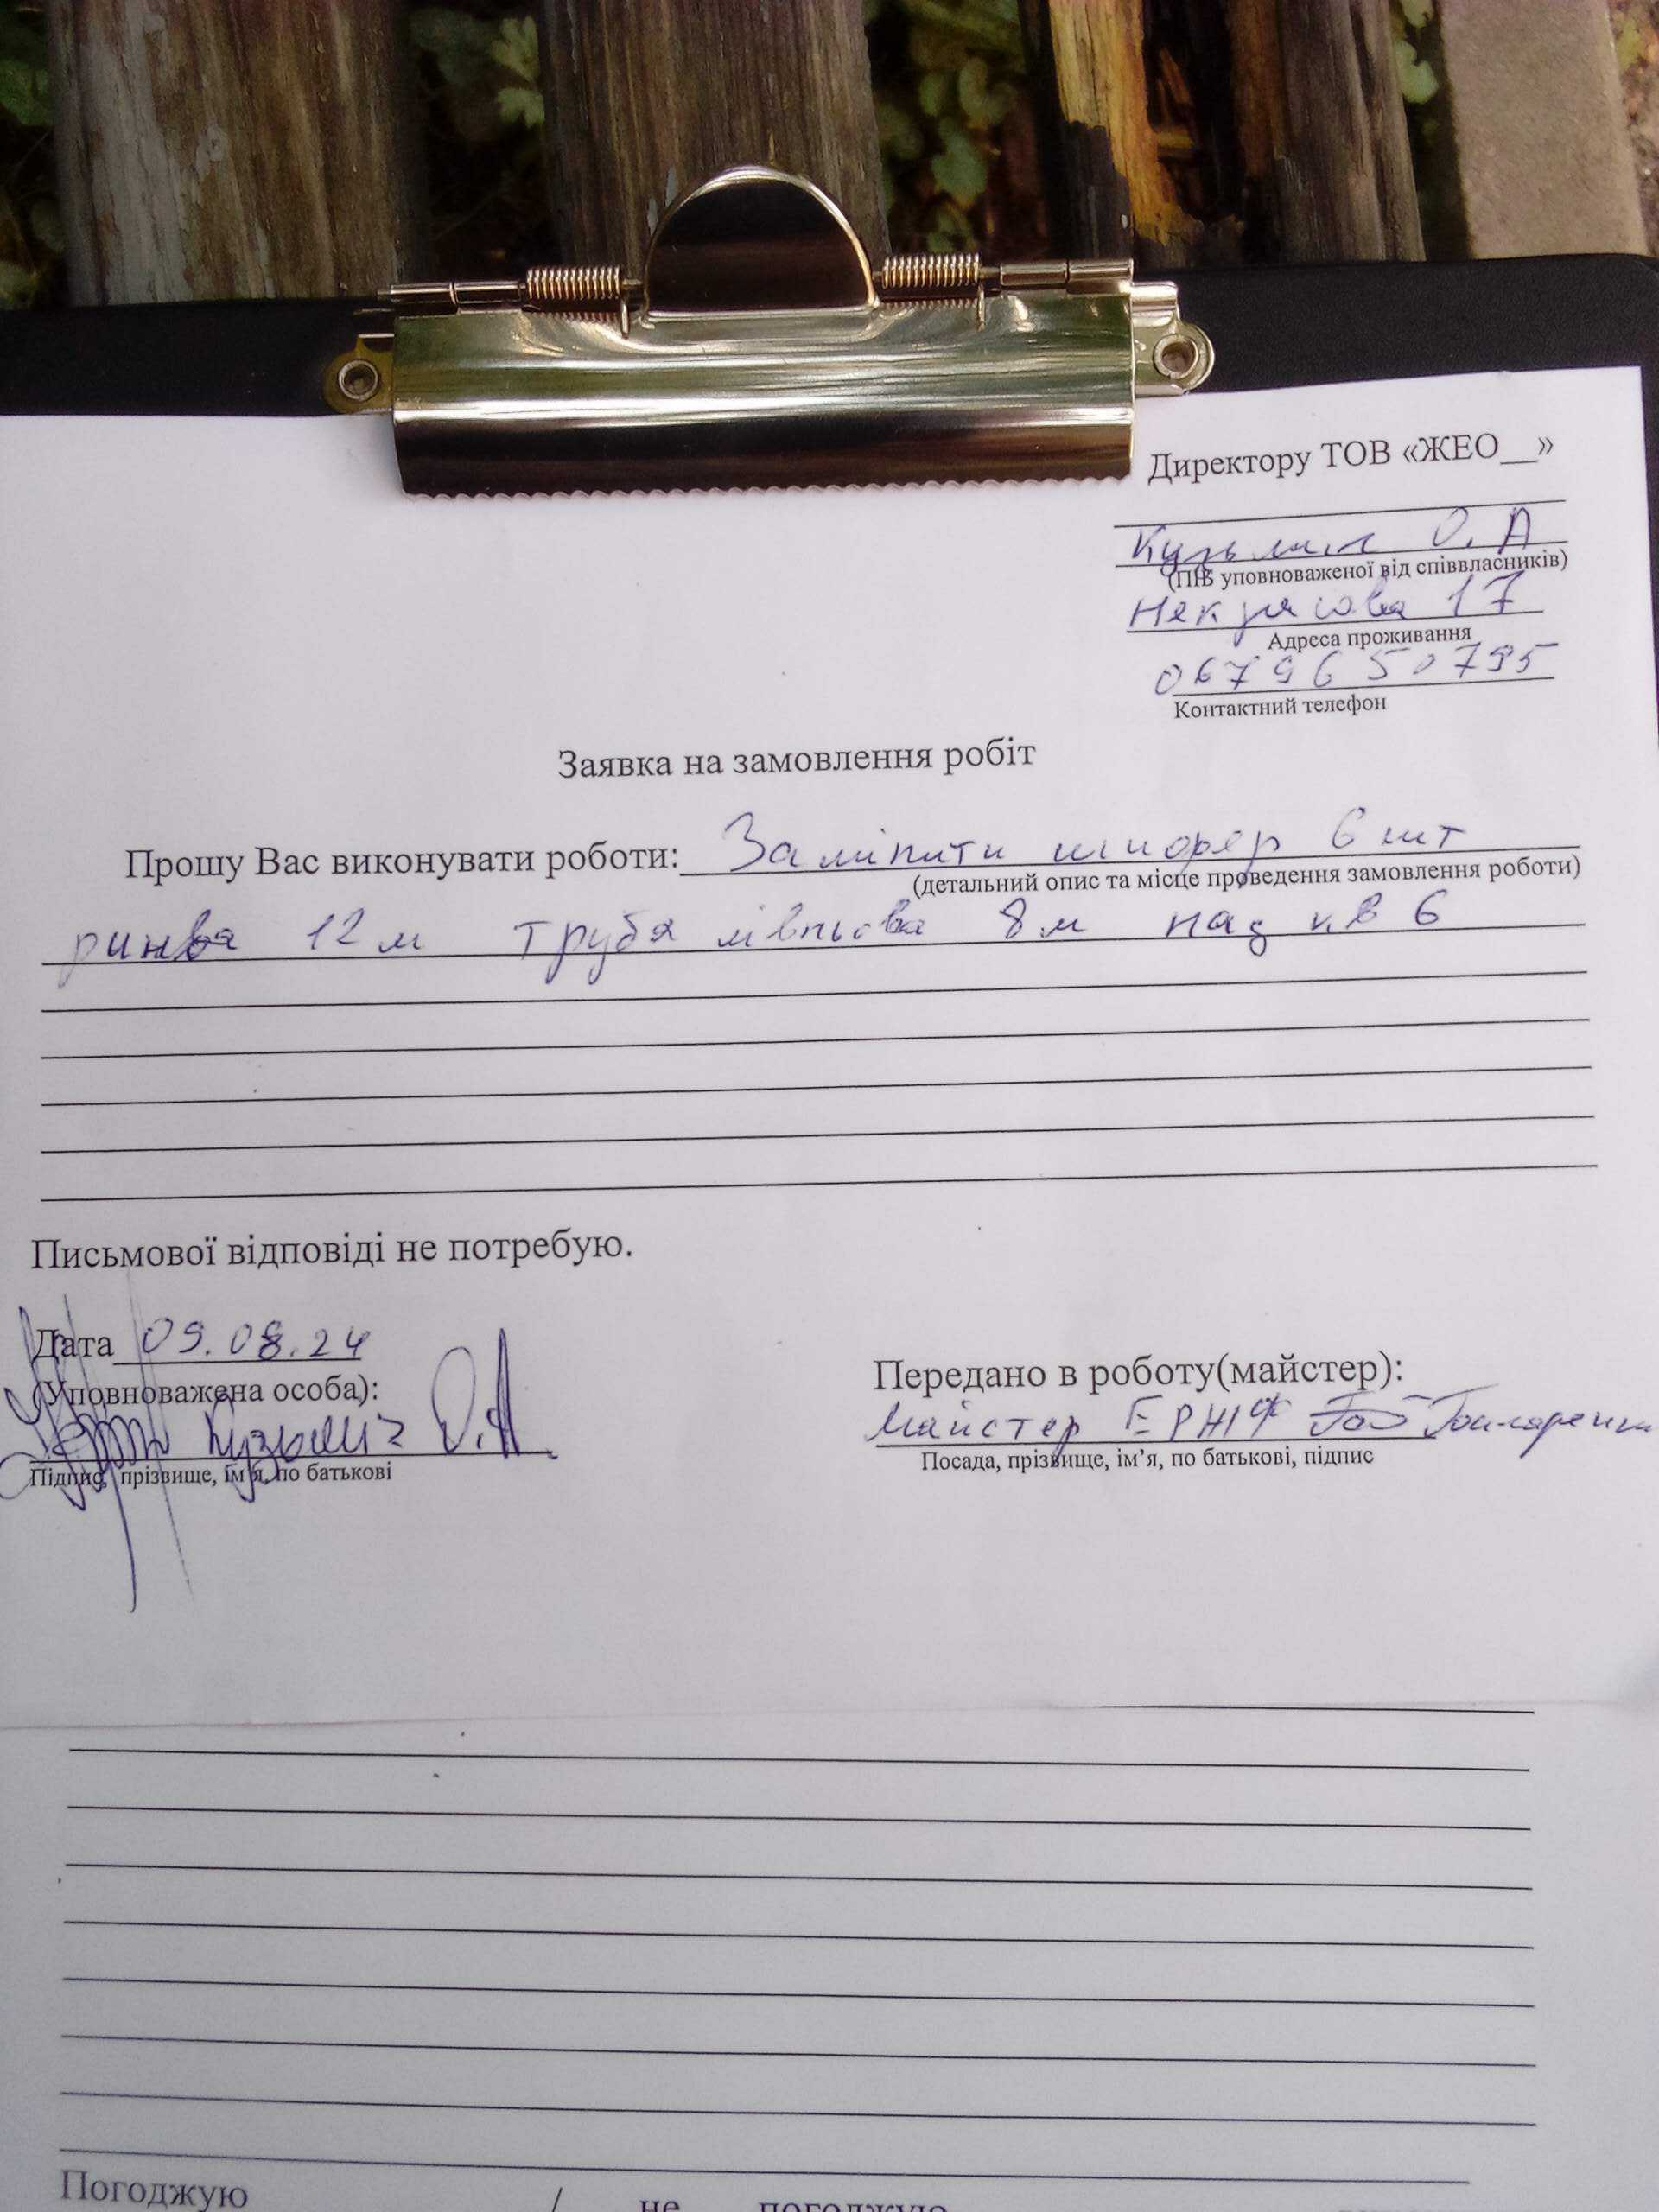 Директору ТОВ «ЖЕО__»
Кузьміч О. А
(ПІБ уповноваженої від співвласників)
Некрасова 17
Адреса проживання
0679650795
Контактний телефон
Заявка на замовлення робіт
Прошу Вас виконувати роботи: Замінити шифер 6 шт
(детальний опис та місце проведення замовлення роботи)
ринва 12 м труба лівньова 8 м над кв 6
Письмової відповіді не потребую.
Дата 09.08.24
(Уповноважена особа):
Кузьміч О.А
Підпис, прізвище, ім'я, по батькові
Передано в роботу(майстер):
Майстер ЕРЖФ Гончаренко
Посада, прізвище, ім'я, по батькові, підпис
Погоджую / не погоджую